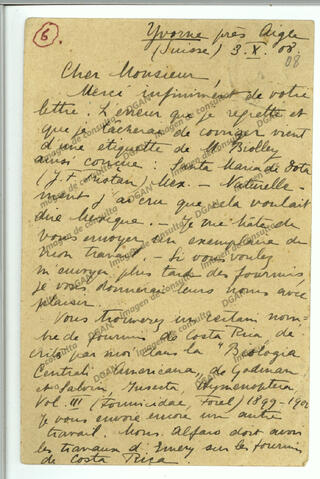 6
Yvorne près Aigle
(Suisse) 3. X. 08.
08
Cher Monsieur,
Merci infiniment de votre
lettre. L'erreur que je regrette et
que je tacherai de corriger vient
d'une etiquette de Mr Biolley
ainsi conçue: Santa Maria de Dota
(J. F. Tristan) Mex. — Naturelle-
ment j'ai cru que cela voulait
dire Mexique. — Je me hâte de
vous envoyer un exemplaire de
mon travail. — Si vous voulez
m'envoyer plus tard des fourmis,
je vous donnerai leurs noms avec
plaisir.
Vous trouverez un certain nom-
bre de fourmis de Costa Rica dé-
crites par moi dans la "Biologia
Centrali Americana, de Godman
et Salvin, Insecta Hymenoptera
Vol. III (Formicidae, Forel) 1899-190
Je vous envoie encore un autre
travail. Mons. Alfaro doit avoir
les travaux d'Emery sur les fourmis
de Costa Rica.
DGAN
Imagen de consulta